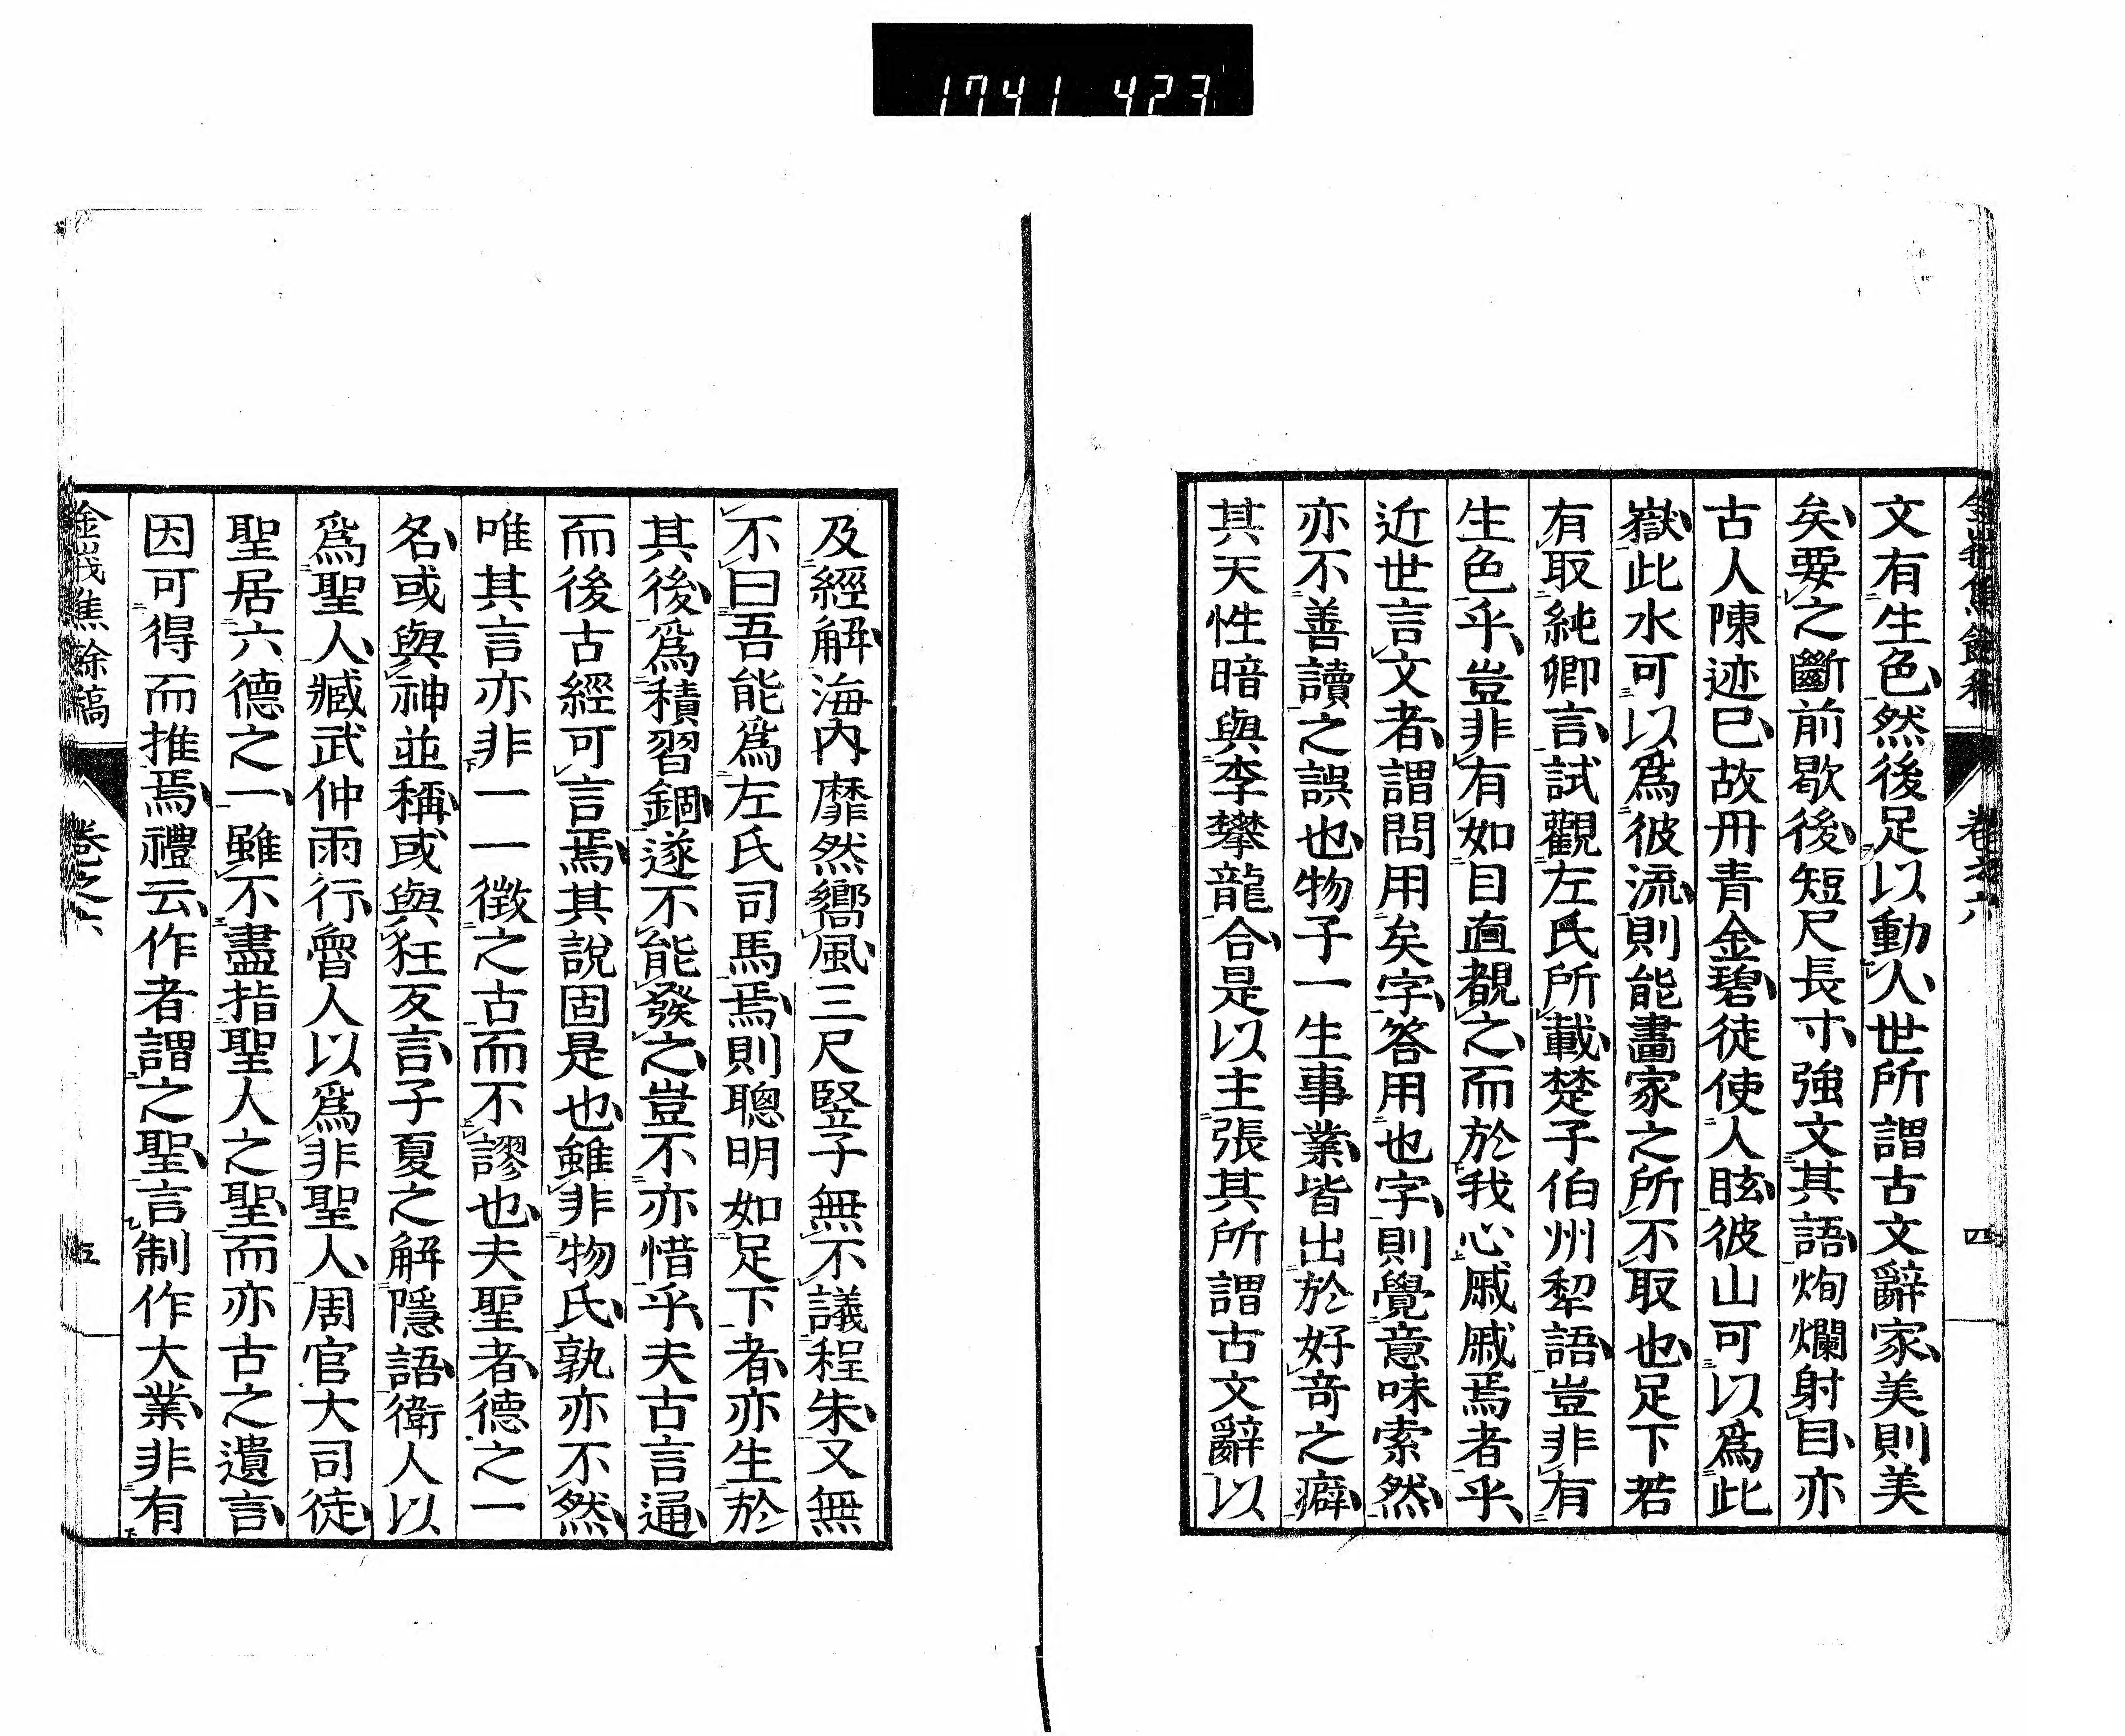 1741 423
文有生色然後足以動人世所謂古文辭家美則美
矣要之斷前歇後短尺長寸強文其語炯爛射目亦
古人陳迹已故丹青金碧徒使人眩彼山可以爲此
嶽此水可以爲彼流則能畫家之所不取也足下若
有取純卿言試觀左氏所載楚子伯州犂語豈非有
生色乎豈非有如目直覩之而於我心戚戚焉者乎
近世言文者謂問用矣字答用也字則覺意味索然
亦不善讀之誤也物子一生事業皆出於好奇之癖
其天性暗與李攀龍合是以主張其所謂古文辭以
卷之六
四
及經解海內靡然嚮風三尺竪子無不議程朱又無
不曰吾能爲左氏司馬焉則聰明如足下者亦生於
其後爲積習錮遂不能發之豈不亦惜乎夫古言通
而後古經可言焉其說固是也雖非物氏孰亦不然
唯其言亦非一一徵之古而不謬也夫聖者德之一
名或與神並稱或與狂反言子夏之解隱語衛人以
爲聖人臧武仲雨行魯人以爲非聖人周官大司徒
聖居六德之一雖不盡指聖人之聖而亦古之遺言
因可得而推焉禮云作者謂之聖言制作大業非有
金峩焦餘稿
卷之六
五